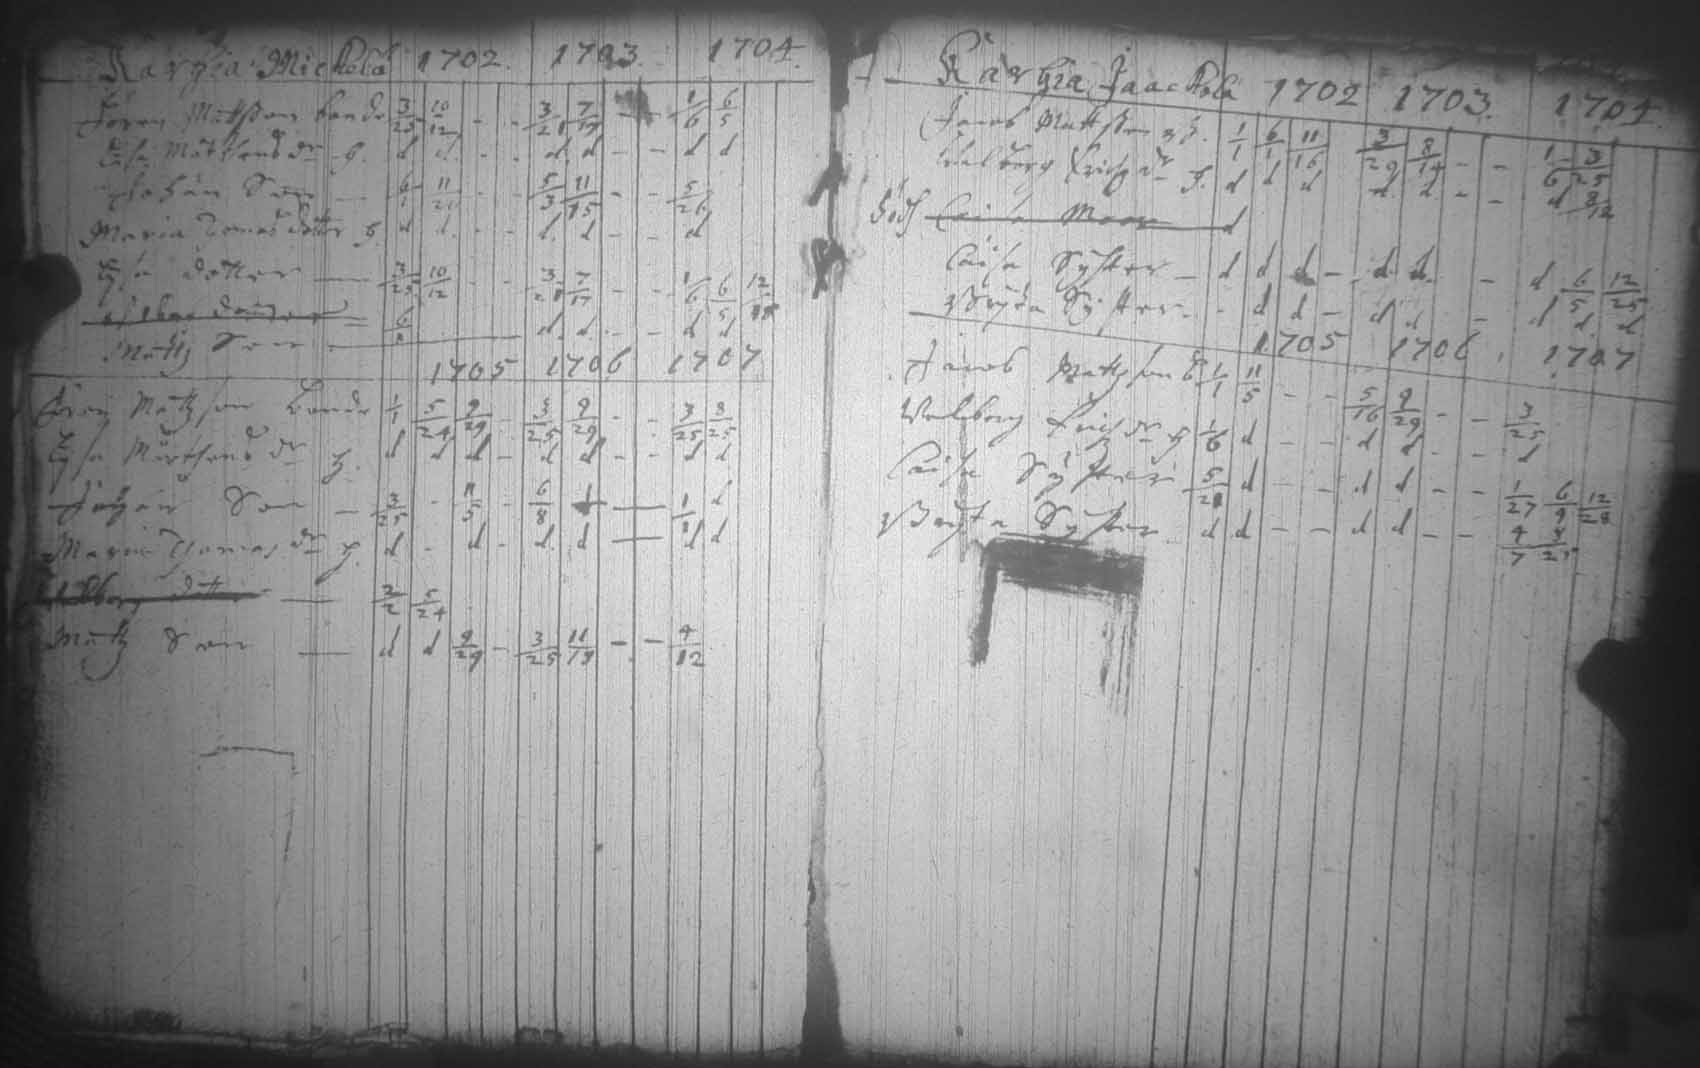 Kärgia Mickola 1702. 1703. 1704.
Jören Mattsson bonde 3/25 10/12 - - 3/21 7/17 - - 1/6 6/5
Lisa Mårthens dr h. d d - - d d - - d d
Johan Son — 6/1 11/21 - - 5/3 11/15 - - 5/26
Maria Tomas dotter h. d d - - d d - - d
Lisa dotter — 3/25 10/12 - - 3/21 7/17 - - 1/6 6/5 12/18
dotter — 6/1 d d - - d d
Mattz Son —
1705 1706 1707
Jören Mattzson bonde 1/1 5/24 9/29 - 3/25 9/29 - - 3/25 8/25
Lisa Mårthens dr h. d d d - d d - - d d
Johan Son — 3/25 - 11/5 - 6/8 1 — 1/1 d
Maria Thomas dr h. d - d - d d — d d
dotter — 2/2 5/24
Mattz Son — d d 9/29 - 3/25 11/19 - - 4/12
Kärgia Jaackola 1702 1703. 1704.
Jacob Mattsson 1/1 6/1 11/16 3/29 8/14 - - 1/6 3/25
Walborg Erichz dr h. d d d d d - - d 8/12
död Caisa Moor d
Caisa Syster - d d d - d d - d 6/5 12/25
Brijta Syster - - d d - d d - d d d
1705 1706. 1707
Jacob Mattzson b 1/1 11/5 - - 5/16 9/29 - - 3/25
Walborg Erichz dr h 1/6 d - - d d - - d
Caisa Syster 5/21 d - - d d - - 1/27 6/9 12/28
Brijta Syster d d - - d d - - 4/7 3/25